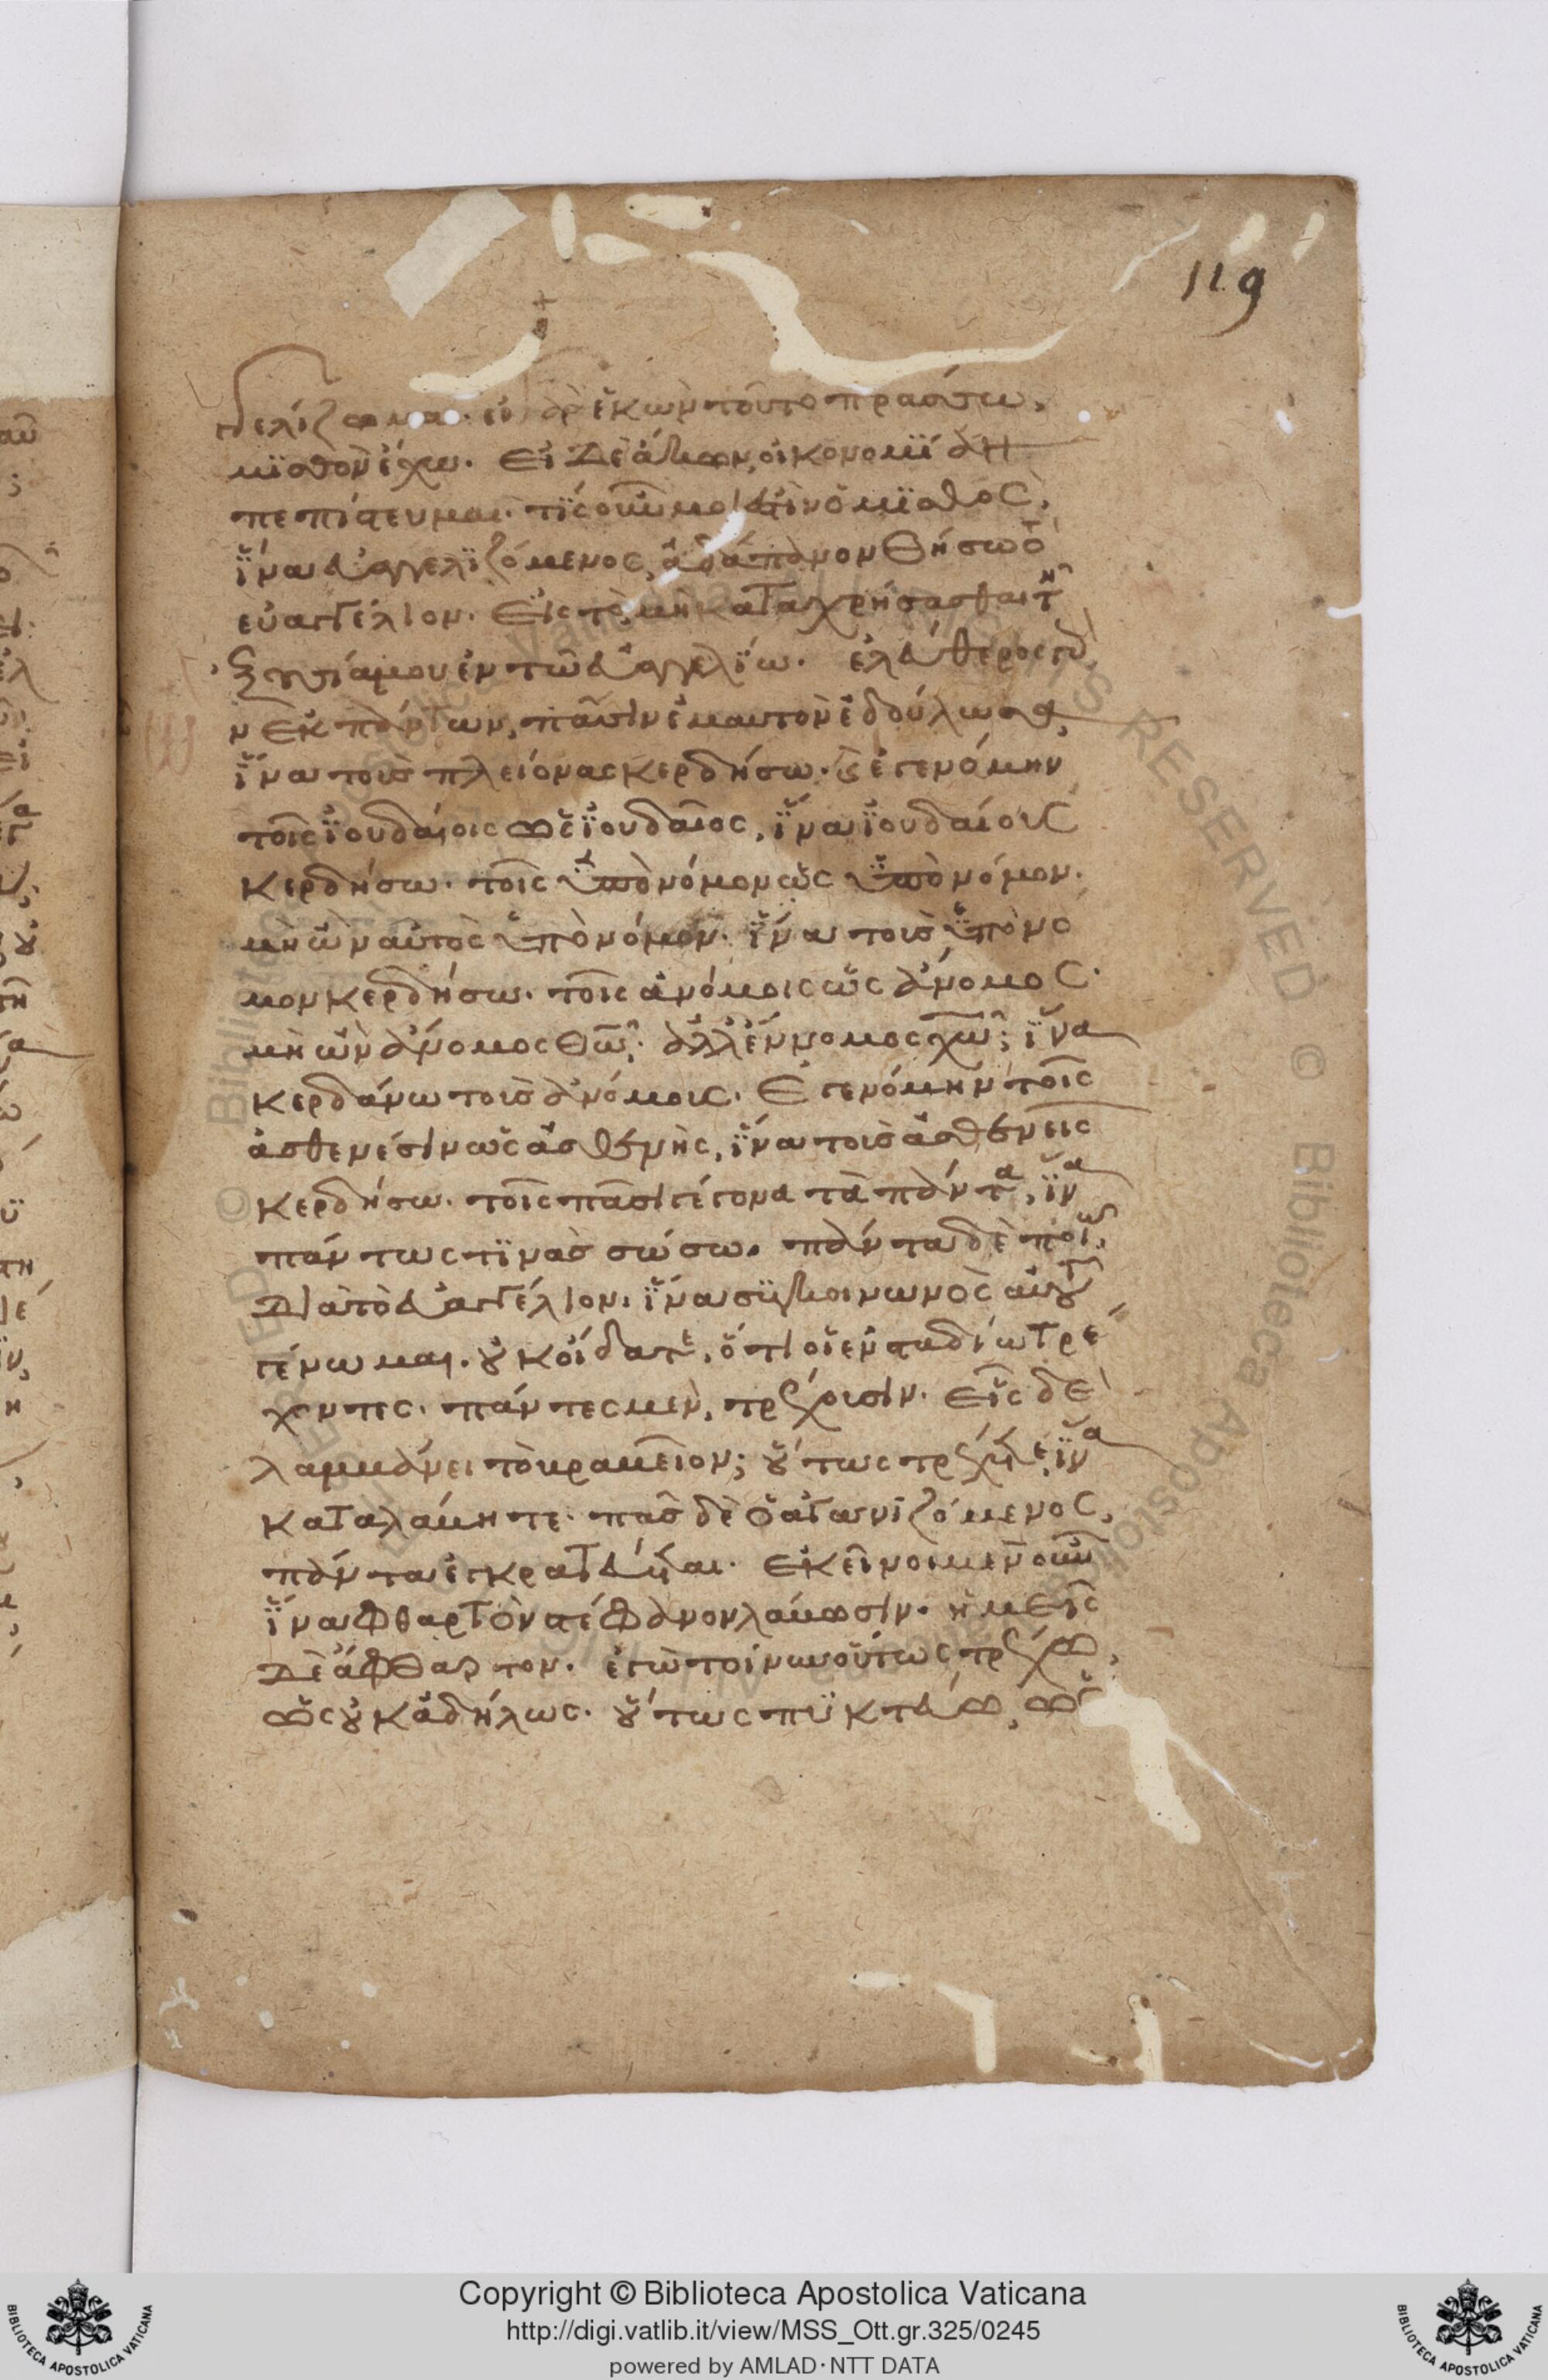 119
γελίζωμαι· εἰ γὰρ ἑκὼν τοῦτο πράσσω,
μϊσθὸν ἔχω· Εἰ δὲ ἄκων, οἰκονομί̈αν
πεπίστευμαι· τίς οὖν μοι ἐστὶν ὁ μϊσθὸς,
ἵ̈να εὐαγγελϊζόμενος, ἀδάπανον θήσω τὸ
εὐαγγέλιον· Εἰς τὸ μὴ καταχρήσασθαι τῆ
ἐξουσία μου ἐν τῶ εὐαγγελί̈ω· ἐλεύθερος γὰρ
ὢν Ἐκ πάντων, πᾶσιν ἐμαυτὸν ἐδούλωσα,
ἵ̈να τοὺς πλείονας κερδήσω· καὶ ἐγενόμην
τοῖς ϊουδαίοις ὡς ϊουδαῖος, ἵ̈να ϊουδαίους
κερδήσω· τοῖς ὑπὸ νόμον ὡς ὑπὸ νόμον·
μὴ ὢν αὐτὸς ὑπὸ νόμον· ἵ̈να τοὺς ὑπὸ νό
μον κερδήσω· τοῖς ἀνόμοις ὡς ἄνομος·
μὴ ὢν ἄνομος θῶ· ἀλλ ἔννομος χῶ; ἵ̈να
κερδάνω τοὺς ἀνόμους· Ἐγενόμην τοῖς
ἀσθενέσιν ὡς ἀσθενὴς, ἵ̈να τοὺς ἀσθενεῖς
κερδήσω· τοῖς πᾶσι γέγονα τὰ πάντα, ἵ̈να
πάντως τϊνὰς σώσω· πάντα δὲ ποιῶ,
Διὰ τὸ εὐαγγέλιον· ἵ̈να συγκοινωνὸς αὐτοῦ
γένωμαι· οὐκ οἴδατε, ὅτι οἱ ἐν σταδίω τρέ
χοντες· πάντες μὲν, τρέχουσιν· Εἷς δὲ
λαμβάνει τὸ βραβεῖον; οὕτως τρέχετε, ἵ̈να
καταλάβητε· πᾶς δὲ ὁ ἀγωνϊζόμενος,
πάντα ἐγκρατεύεται· Ἐκεῖνοι μὲν οὖν
ἵ̈να φθαρτὸν στέφανον λάβωσιν· ἡμεῖς
Δὲ ἄφθαρτον· ἐγὼ τοίνυν οὕτως τρέχω,
ὡς οὐκ ἀδήλως· οὕτως πϋκτεύω, ὡς
Copyright © Biblioteca Apostolica Vaticana
http://digi.vatlib.it/view/MSS_Ott.gr.325/0245
powered by AMLAD·NTT DATA